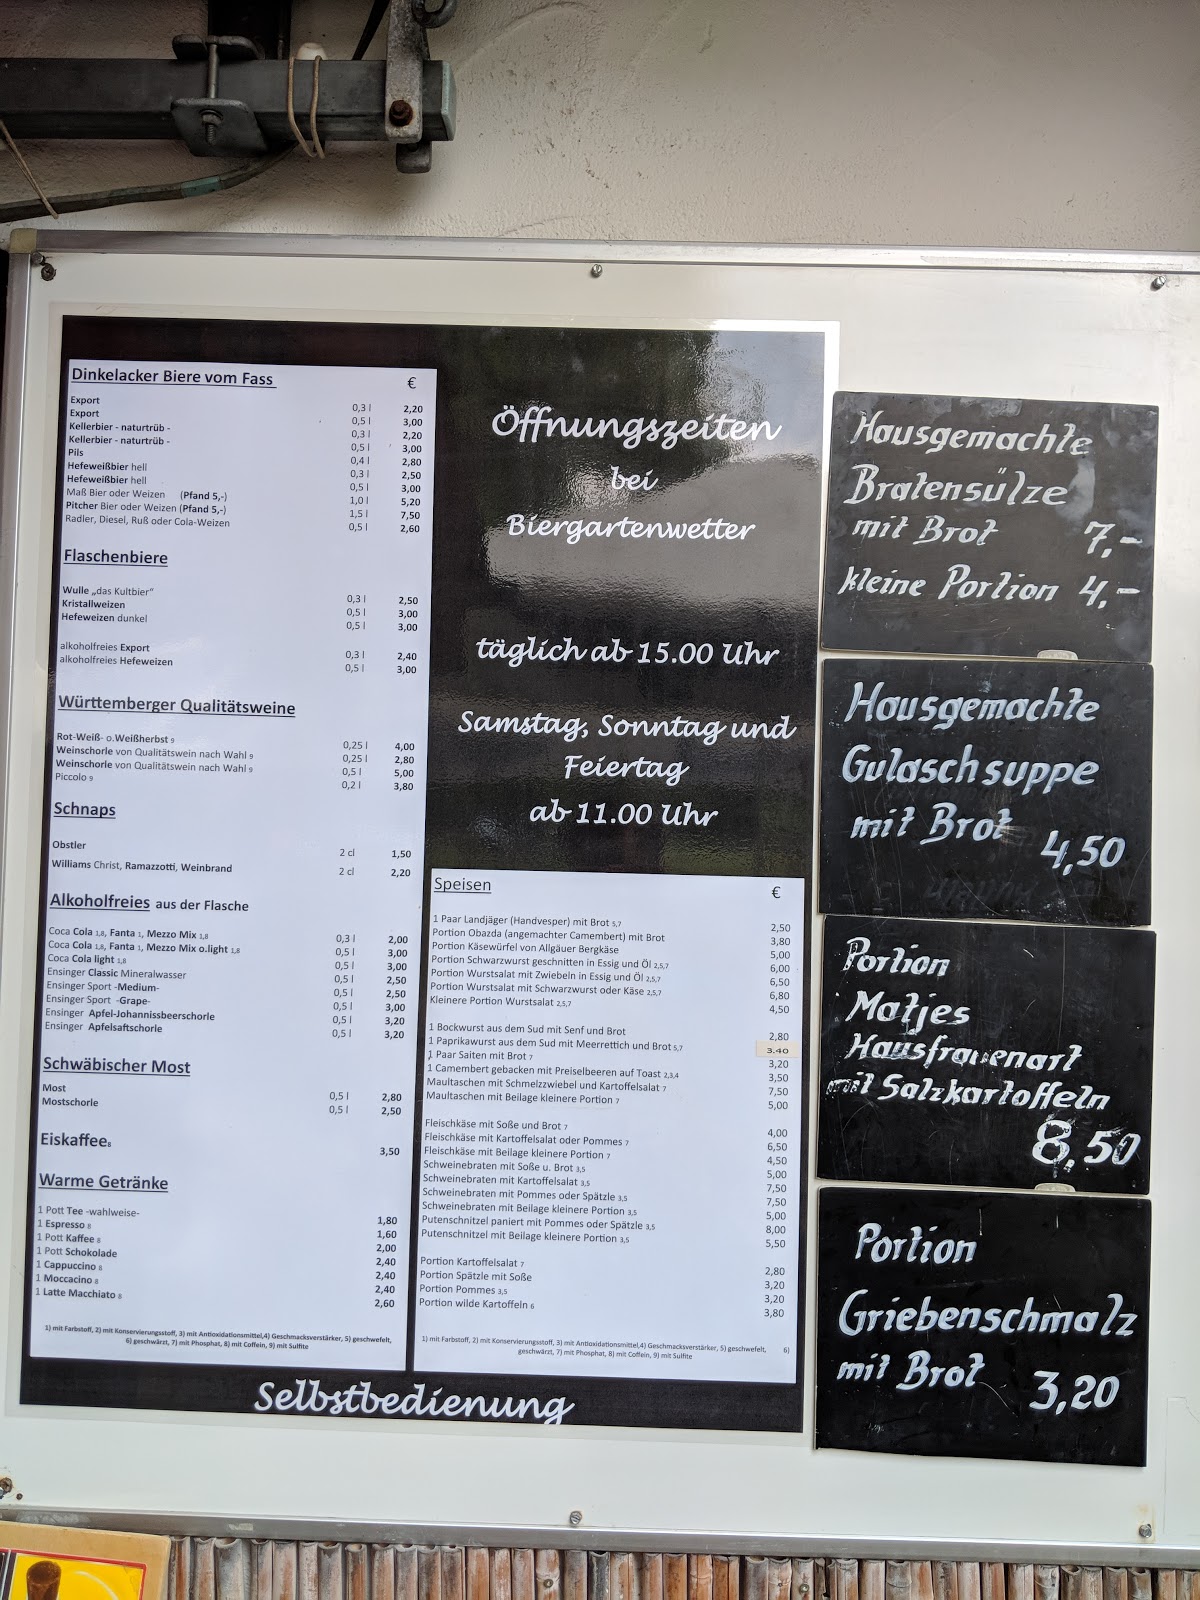 Dinkelacker Biere vom Fass €
Export 0,3 l 2,20
Export 0,5 l 3,00
Kellerbier - naturtrüb - 0,3 l 2,20
Kellerbier - naturtrüb - 0,5 l 3,00
Pils 0,4 l 2,80
Hefeweißbier hell 0,3 l 2,50
Hefeweißbier hell 0,5 l 3,00
Maß Bier oder Weizen (Pfand 5,-) 1,0 l 5,20
Pitcher Bier oder Weizen (Pfand 5,-) 1,5 l 7,50
Radler, Diesel, Ruß oder Cola-Weizen 0,5 l 2,60
Flaschenbiere
Wulle „das Kultbier“ 0,3 l 2,50
Kristallweizen 0,5 l 3,00
Hefeweizen dunkel 0,5 l 3,00
alkoholfreies Export 0,3 l 2,40
alkoholfreies Hefeweizen 0,5 l 3,00
Württemberger Qualitätsweine
Rot-Weiß- o.Weißherbst 9 0,25 l 4,00
Weinschorle von Qualitätswein nach Wahl 9 0,25 l 2,80
Weinschorle von Qualitätswein nach Wahl 9 0,5 l 5,00
Piccolo 9 0,2 l 3,80
Schnaps
Obstler 2 cl 1,50
Williams Christ, Ramazzotti, Weinbrand 2 cl 2,20
Alkoholfreies aus der Flasche
Coca Cola 1,8, Fanta 1, Mezzo Mix 1,8 0,3 l 2,00
Coca Cola 1,8, Fanta 1, Mezzo Mix o.light 1,8 0,5 l 3,00
Coca Cola light 1,8 0,5 l 3,00
Ensinger Classic Mineralwasser 0,5 l 2,50
Ensinger Sport -Medium- 0,5 l 2,50
Ensinger Sport -Grape- 0,5 l 3,00
Ensinger Apfel-Johannissbeerschorle 0,5 l 3,20
Ensinger Apfelsaftschorle 0,5 l 3,20
Schwäbischer Most
Most 0,5 l 2,80
Mostschorle 0,5 l 2,50
Eiskaffee8 3,50
Warme Getränke
1 Pott Tee -wahlweise- 1,80
1 Espresso 8 1,60
1 Pott Kaffee 8 2,00
1 Pott Schokolade 2,40
1 Cappuccino 8 2,40
1 Moccacino 8 2,40
1 Latte Macchiato 8 2,60
1) mit Farbstoff, 2) mit Konservierungsstoff, 3) mit Antioxidationsmittel,4) Geschmacksverstärker, 5) geschwefelt,
6) geschwärzt, 7) mit Phosphat, 8) mit Coffein, 9) mit Sulfite
Öffnungszeiten
bei
Biergartenwetter
täglich ab 15.00 Uhr
Samstag, Sonntag und
Feiertag
ab 11.00 Uhr
Speisen €
1 Paar Landjäger (Handvesper) mit Brot 5,7 2,50
Portion Obazda (angemachter Camembert) mit Brot 3,80
Portion Käsewürfel von Allgäuer Bergkäse 5,00
Portion Schwarzwurst geschnitten in Essig und Öl 2,5,7 6,00
Portion Wurstsalat mit Zwiebeln in Essig und Öl 2,5,7 6,50
Portion Wurstsalat mit Schwarzwurst oder Käse 2,5,7 6,80
Kleinere Portion Wurstsalat 2,5,7 4,50
1 Bockwurst aus dem Sud mit Senf und Brot 2,80
1 Paprikawurst aus dem Sud mit Meerrettich und Brot 5,7 3.40
1 Paar Saiten mit Brot 7 3,20
1 Camembert gebacken mit Preiselbeeren auf Toast 2,3,4 3,50
Maultaschen mit Schmelzzwiebel und Kartoffelsalat 7 7,50
Maultaschen mit Beilage kleinere Portion 7 5,00
Fleischkäse mit Soße und Brot 7 4,00
Fleischkäse mit Kartoffelsalat oder Pommes 7 6,50
Fleischkäse mit Beilage kleinere Portion 7 4,50
Schweinebraten mit Soße u. Brot 3,5 5,00
Schweinebraten mit Kartoffelsalat 3,5 7,50
Schweinebraten mit Pommes oder Spätzle 3,5 7,50
Schweinebraten mit Beilage kleinere Portion 3,5 5,00
Putenschnitzel paniert mit Pommes oder Spätzle 3,5 8,00
Putenschnitzel mit Beilage kleinere Portion 3,5 5,50
Portion Kartoffelsalat 7 2,80
Portion Spätzle mit Soße 3,20
Portion Pommes 3,5 3,20
Portion wilde Kartoffeln 6 3,80
1) mit Farbstoff, 2) mit Konservierungsstoff, 3) mit Antioxidationsmittel,4) Geschmacksverstärker, 5) geschwefelt, 6)
geschwärzt, 7) mit Phosphat, 8) mit Coffein, 9) mit Sulfite
Selbstbedienung
Hausgemachte
Bratensülze
mit Brot 7,-
kleine Portion 4,-
Hausgemachte
Gulaschsuppe
mit Brot 4,50
Portion
Matjes
Hausfrauenart
mit Salzkartoffeln
8,50
Portion
Griebenschmalz
mit Brot 3,20